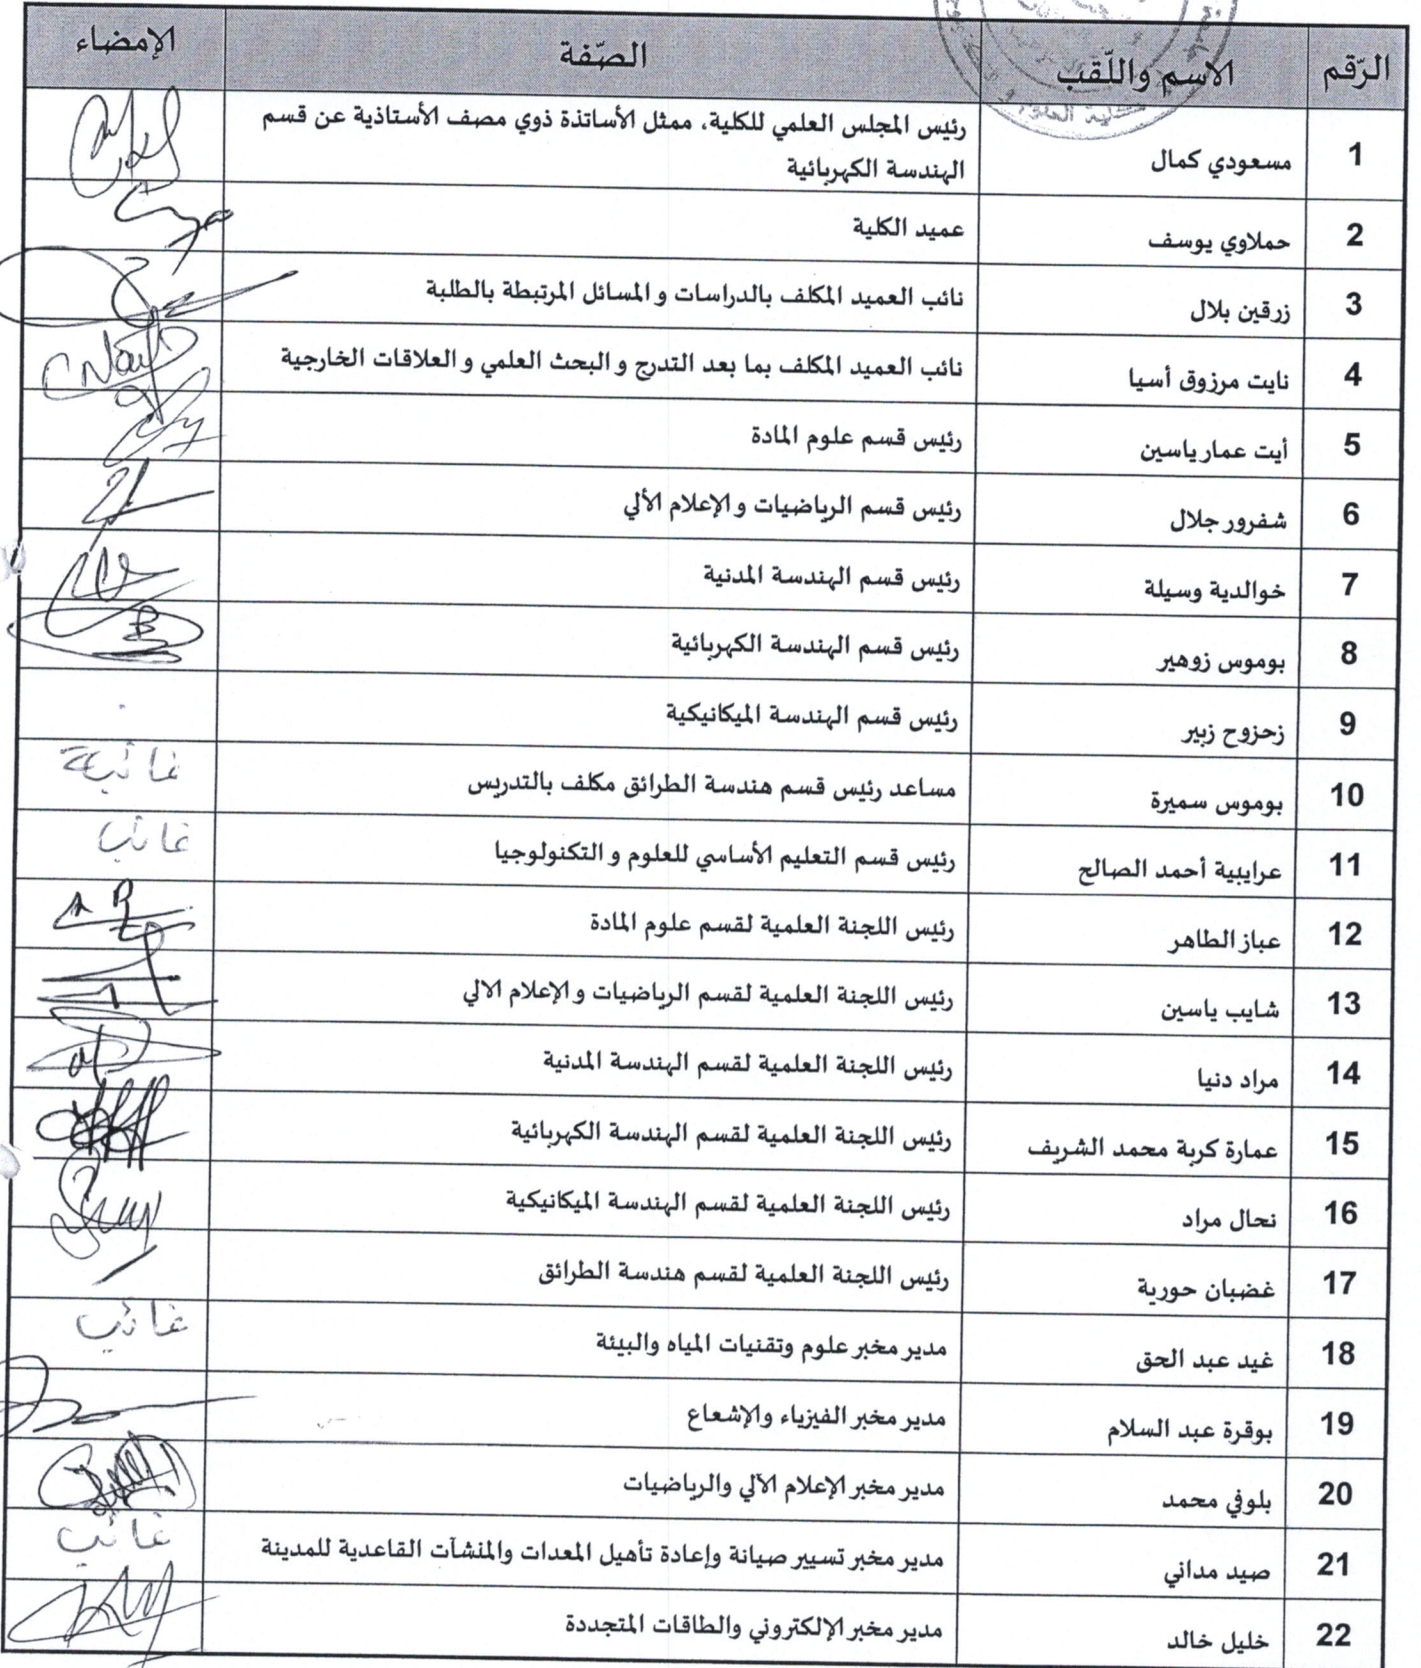 الرّقم الاسم واللّقب الصّفة الإمضاء
1 مسعودي كمال رئيس المجلس العلمي للكلية، ممثل الأساتذة ذوي مصف الأستاذية عن قسم
الهندسة الكهربائية
2 حملاوي يوسف عميد الكلية
3 زرقين بلال نائب العميد المكلف بالدراسات و المسائل المرتبطة بالطلبة
4 نايت مرزوق أسيا نائب العميد المكلف بما بعد التدرج و البحث العلمي و العلاقات الخارجية
5 أيت عمار ياسين رئيس قسم علوم المادة
6 شفرور جلال رئيس قسم الرياضيات و الإعلام الألي
7 خوالدية وسيلة رئيس قسم الهندسة المدنية
8 بوموس زوهير رئيس قسم الهندسة الكهربائية
9 زحزوح زبير رئيس قسم الهندسة الميكانيكية
10 بوموس سميرة مساعد رئيس قسم هندسة الطرائق مكلف بالتدريس غائبة
11 عرايبية أحمد الصالح رئيس قسم التعليم الأساسي للعلوم و التكنولوجيا غائب
12 عباز الطاهر رئيس اللجنة العلمية لقسم علوم المادة
13 شايب ياسين رئيس اللجنة العلمية لقسم الرياضيات و الإعلام الالي
14 مراد دنيا رئيس اللجنة العلمية لقسم الهندسة المدنية
15 عمارة كربة محمد الشريف رئيس اللجنة العلمية لقسم الهندسة الكهربائية
16 نحال مراد رئيس اللجنة العلمية لقسم الهندسة الميكانيكية
17 غضبان حورية رئيس اللجنة العلمية لقسم هندسة الطرائق
18 غيد عبد الحق مدير مخبر علوم وتقنيات المياه والبيئة غائب
19 بوقرة عبد السلام مدير مخبر الفيزياء والإشعاع
20 بلوفي محمد مدير مخبر الإعلام الآلي والرياضيات
21 صيد مداني مدير مخبر تسيير صيانة وإعادة تأهيل المعدات والمنشآت القاعدية للمدينة غائب
22 خليل خالد مدير مخبر الإلكتروني والطاقات المتجددة